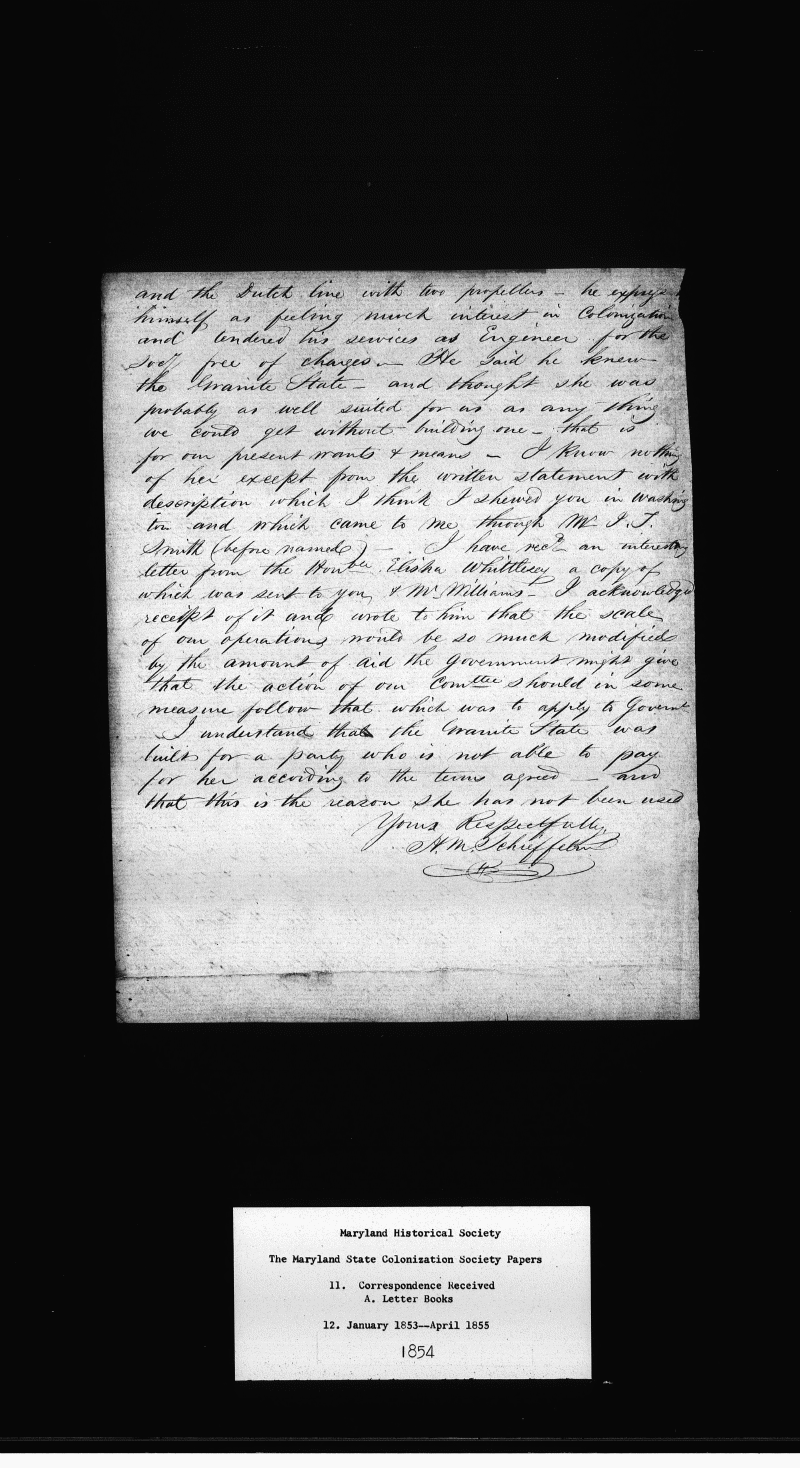 and the Dutch line with two propellers – he express
himself as feeling much interest in Colonization
and tendered his services as Engineer for the
Socy free of charges – He said he knew
the Granite State – and thought she was
probably as well suited for us as any thing
we could get without building one – that is
for our present wants & means – I know nothing
of her except from the written statement with
description which I think I shewed you in Washing
ton and which came to me through Mr
Smith (before named) – I have recd an interesting
letter from the Honble Elisha Whittlesey a copy of
which was sent to you & Mr Williams – I acknowledged
receipt of it and wrote to him that the scale
of our operations would be so much modified
by the amount of aid the government might give
that the action of our Comttee should in some
measure follow that which was to apply to Governt
I understand that the Granite State was
built for a party who is not able to pay
for her according to the terms agreed – and
that this is the reason she has not been used
Yours Respectfully
H. M. Schieffelin
Maryland Historical Society
The Maryland State Colonization Society Papers
11. Correspondence Received
A. Letter Books
12. January 1853--April 1855
1854